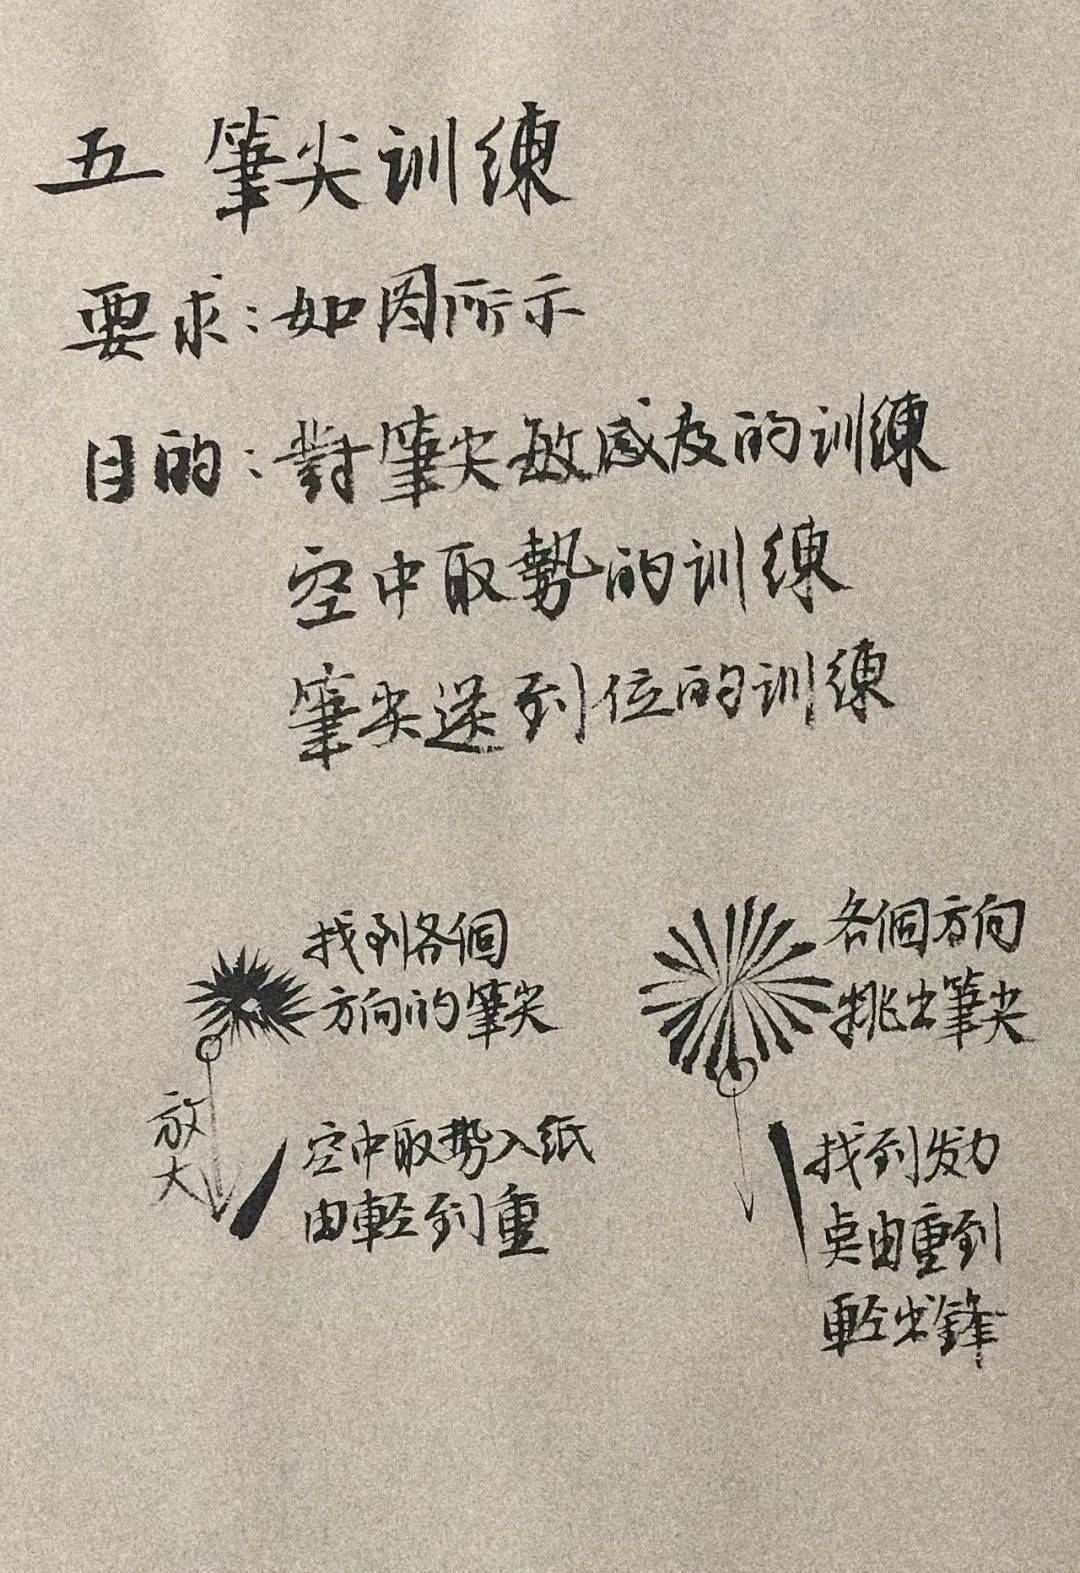 五 筆尖训練
要求：如图所示
目的：對筆尖敏感度的训練
空中取勢的训練
筆尖送到位的训練
找到各個
方向的筆尖
放大
空中取势入纸
由輕到重
各個方向
挑出筆尖
找到发力
点由重到
輕出鋒